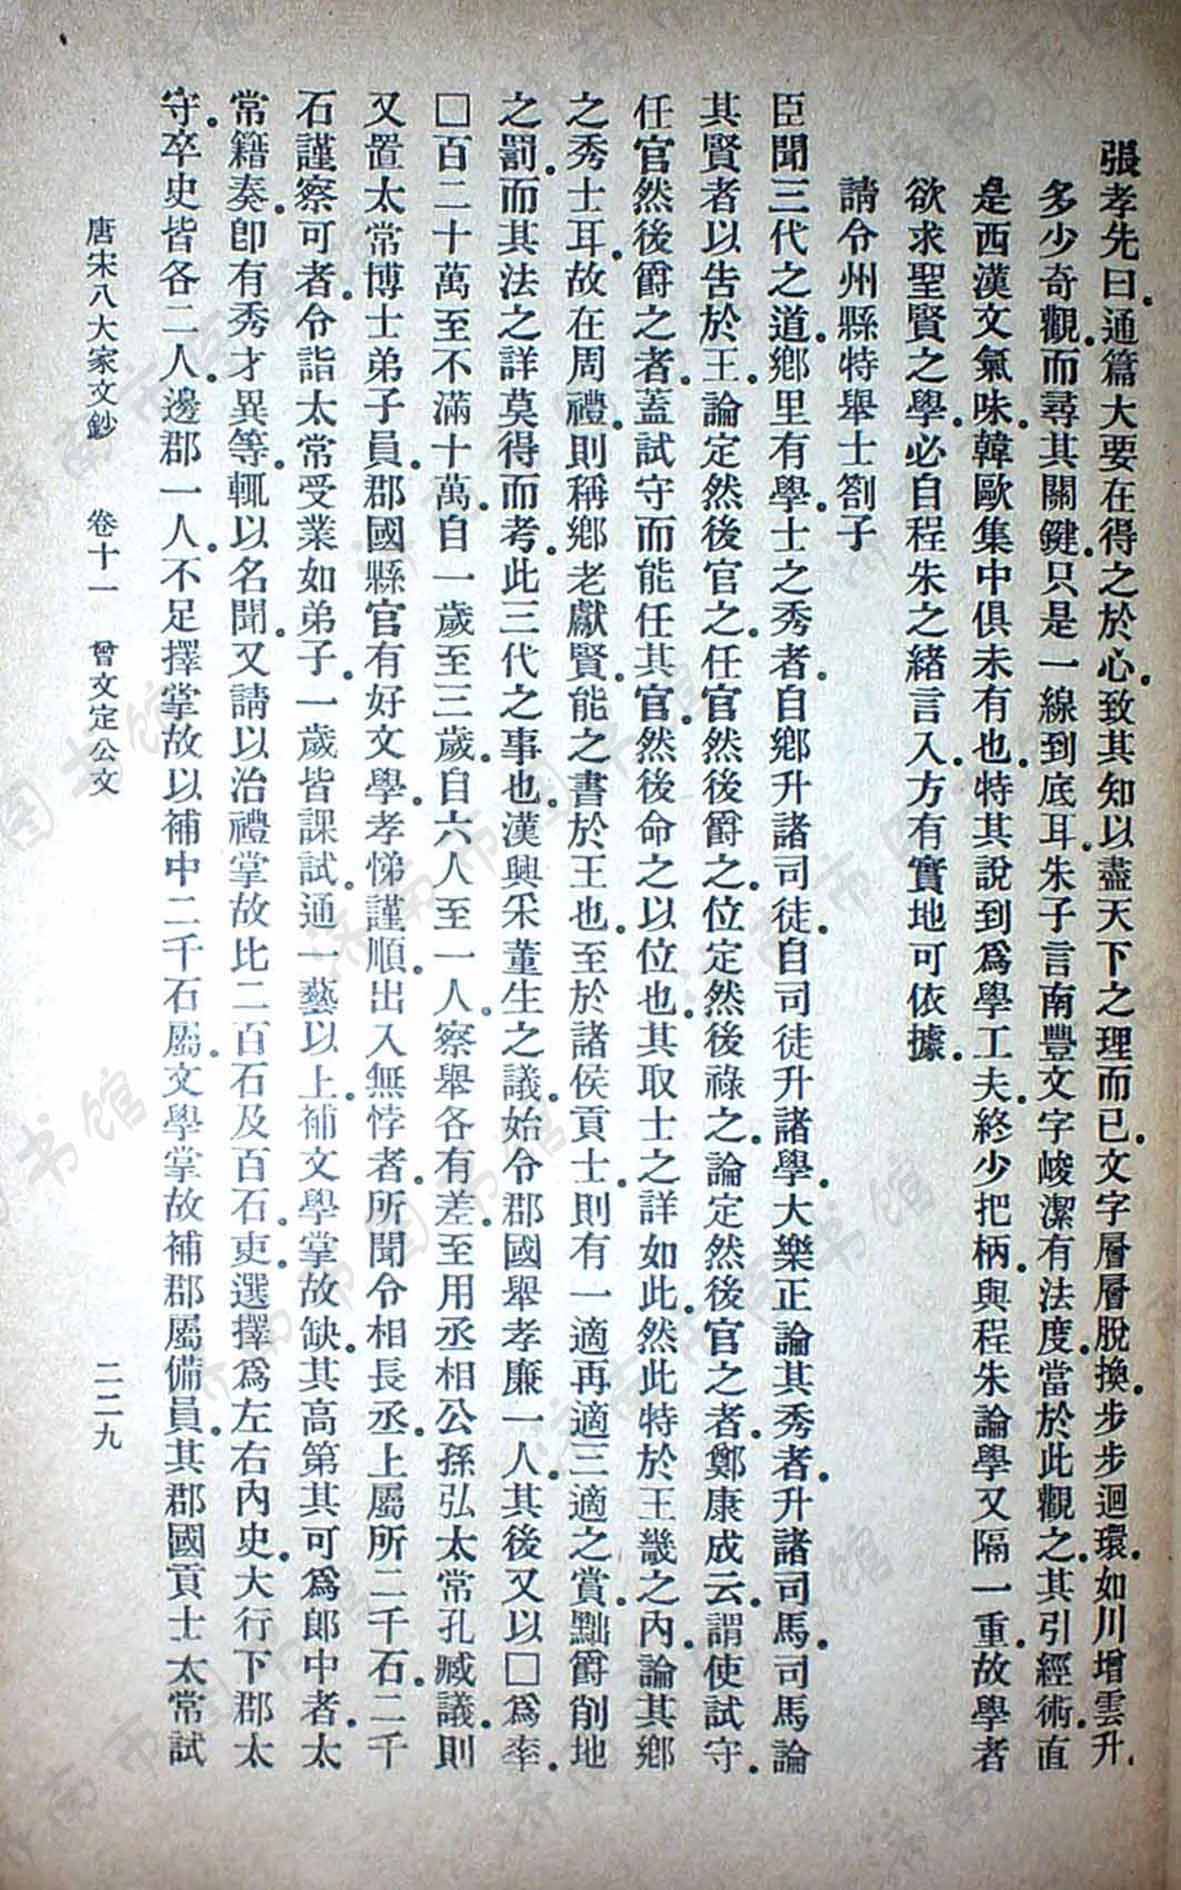 張孝先曰.通篇大要在得之於心.致其知以盡天下之理而已.文字層層脫換.步步迴環.如川增雲升.
多少奇觀.而尋其關鍵.只是一線到底耳.朱子言南豐文字峻潔有法度.當於此觀之.其引經術.直
是西漢文氣味.韓歐集中俱未有也.特其說到爲學工夫.終少把柄.與程朱論學又隔一重.故學者
欲求聖賢之學.必自程朱之緒言入.方有實地可依據.
請令州縣特舉士劄子
臣聞三代之道.鄉里有學.士之秀者.自鄉升諸司徒.自司徒升諸學.大樂正論其秀者.升諸司馬.司馬論
其賢者以告於王.論定然後官之.任官然後爵之.位定然後祿之.論定然後官之者.鄭康成云.謂使試守.
任官然後爵之者.蓋試守而能任其官.然後命之以位也.其取士之詳如此.然此特於王畿之內.論其鄉
之秀士耳.故在周禮.則稱鄉老獻賢能之書於王也.至於諸侯貢士.則有一適再適三適之賞.黜爵削地
之罰.而其法之詳莫得而考.此三代之事也.漢興采董生之議.始令郡國舉孝廉一人.其後又以□爲率.
□百二十萬至不滿十萬.自一歲至三歲.自六人至一人.察舉各有差.至用丞相公孫弘太常孔臧議.則
又置太常博士弟子員.郡國縣官有好文學.孝悌謹順.出入無悖者.所聞令相長丞.上屬所二千石.二千
石謹察可者.令詣太常受業如弟子.一歲皆課試.通一藝以上.補文學掌故缺.其高第其可爲郎中者.太
常籍奏.卽有秀才異等.輒以名聞.又請以治禮掌故比二百石及百石吏.選擇爲左右內史.大行下郡太
守.卒史皆各二人.邊郡一人.不足擇掌故以補中二千石屬.文學掌故補郡屬備員.其郡國貢士太常試
唐宋八大家文鈔 卷十一 曾文定公文 二二九